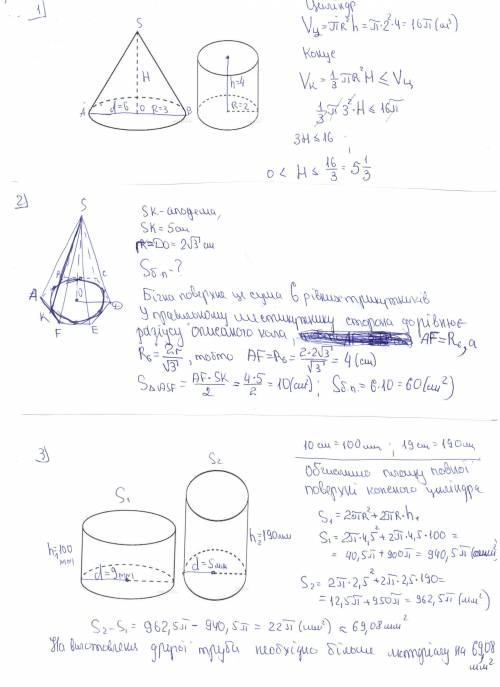 1)
S
H
A
d=6
O
R=3
B
h=4
R=2
Циліндр
Vц=πR²h=π·2²·4=16π(м³)
Конус
Vк=1/3πR²H≤Vц
1/3π3²·H≤16π
3H≤16
0<H≤16/3=5 1/3
2)
S
A
B
C
D
E
F
K
O
SK-апофема,
SK=5см
r= =2√3 см
Sб.п-?
Бічна поверхня це сума 6 рівних трикутників
У правильному шестикутнику сторона дорівнює
радіусу описаного кола, AF=R₆,а
R₆=2r/√3, тобто AF=R₆=2·2√3/√3=4(см)
S△ASF=AF·SK/2=4·5/2=10(см²); Sб.п.=6·10=60(см²)
3)
S₁
h₁=100
мм
d=9мм
S₂
h₂=190мм
d=5мм
10см=100мм; 19см=190мм
Обчислимо площу повної
поверхні кожного циліндра
S₁=2πR²+2πR·h₁
S₁=2π·4,5²+2π·4,5·100=
=40,5π+900π=940,5π(мм²)
S₂=2π·2,5²+2π·2,5·190=
=12,5π+950π=962,5π(мм²)
S₂-S₁=962,5π-940,5π=22π(мм²)≈69,08мм²
На виготовлення другої труби необхідно більше матеріалу на 69,08
мм²